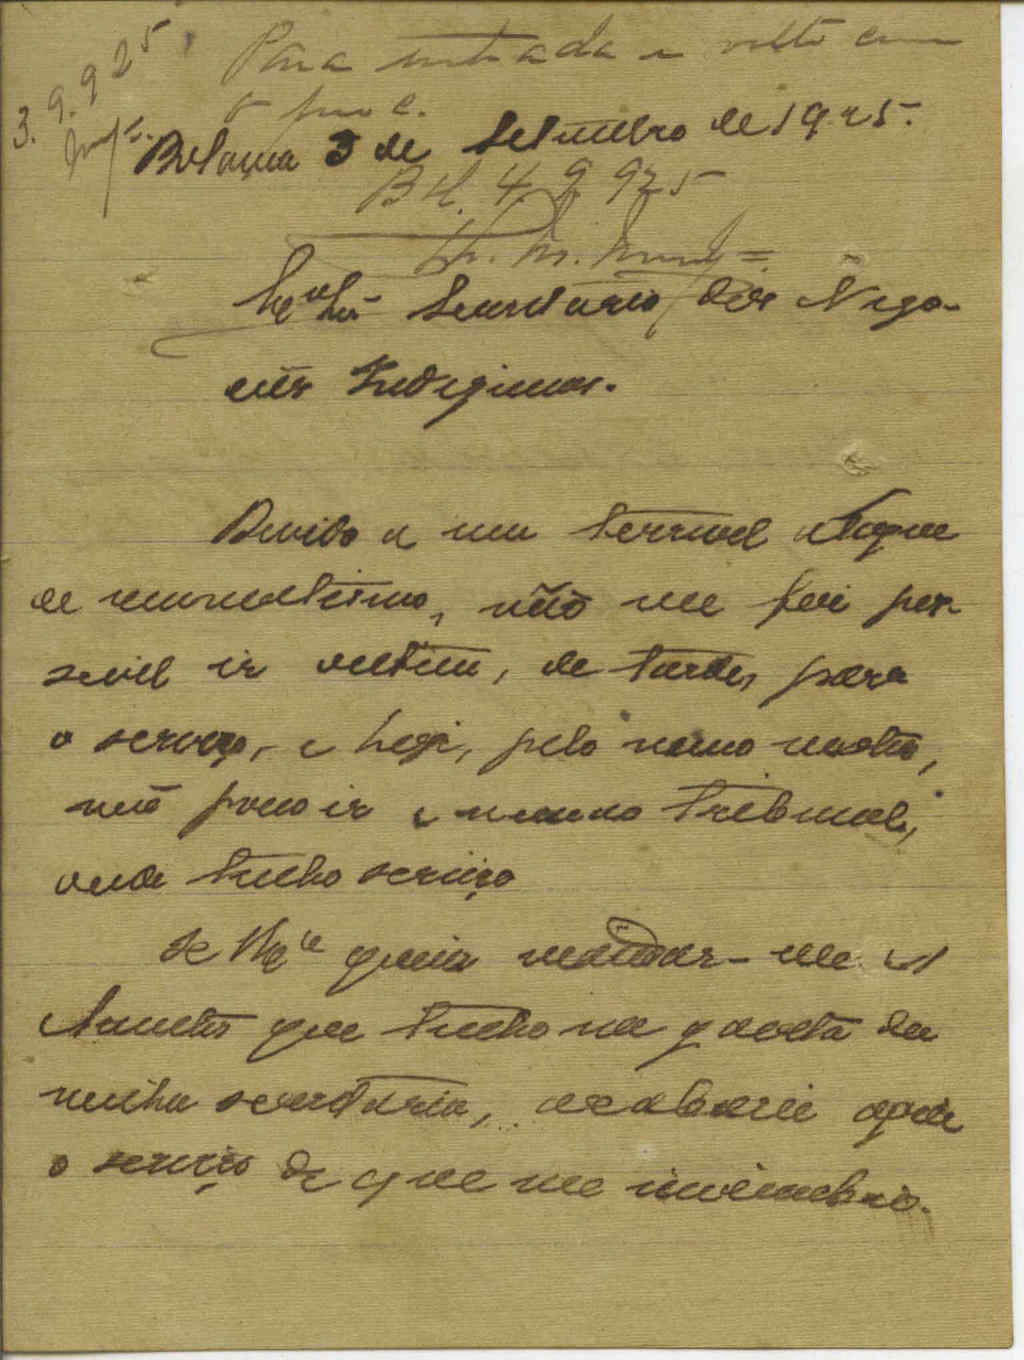 3.9.925
Para entrada e volte com
o proc.
Bolama 3 de Setembro de 1925.
4 9 925
Secretario dos Nego-
cios Indiginas.
Devido a um terrivel ataque
de reumatismo, não me foi pos-
sivel ir ontem, de tarde, para
o serviço, e hoje, pelo mesmo motivo,
não posso ir e mesmo Tribunal,
onde tenho serviço
Se V. Exª queria mandar-me os
que tenho na gaveta da
minha secretaria, acabarei aqui
o serviço de que me incumbiu.